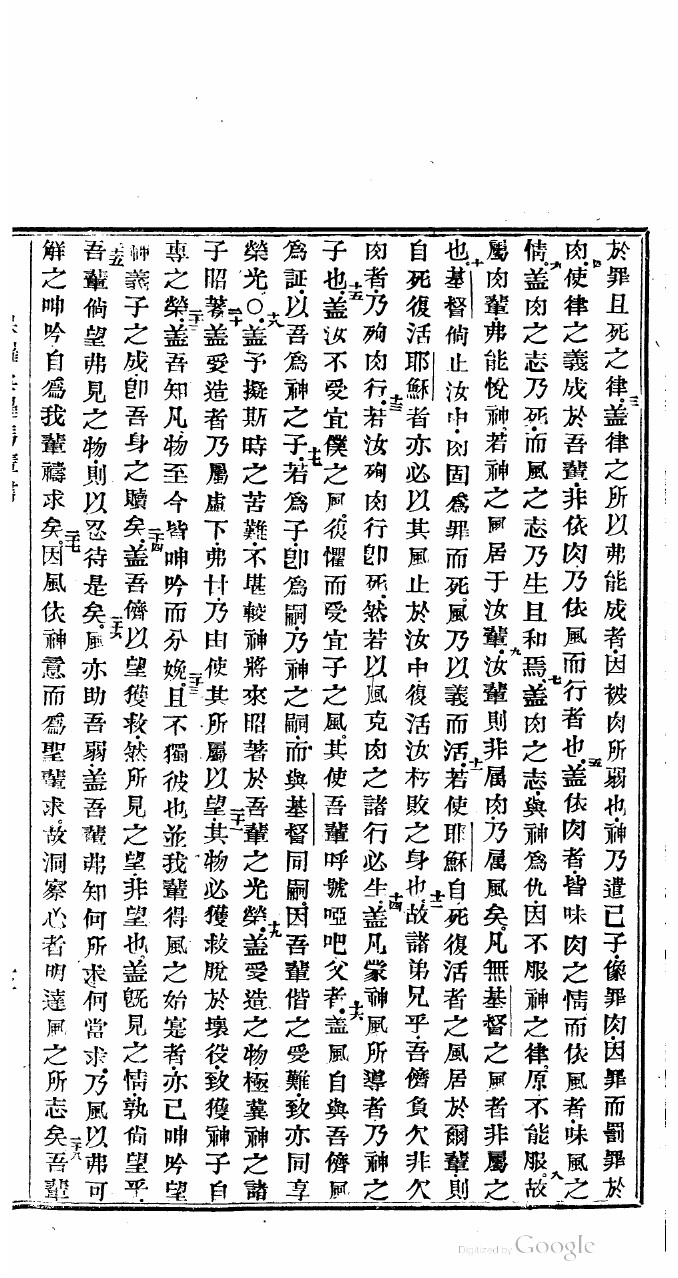 於罪且死之律。三蓋律之所以弗能成者.因被肉所弱也.神乃遣己子.像罪肉.因罪而罰罪於
肉.四使律之義成於吾輩.非依肉乃依風而行者也.五蓋依肉者皆味肉之情而依風者.味風之
情.六蓋肉之志乃死.而風之志乃生且和焉.七蓋肉之志.與神爲仇.因不服神之律.原不能服.八故
屬肉輩弗能悅神.九若神之風居于汝輩.汝輩則非屬肉.乃屬風矣.凡無基督之風者非屬之
也.十基督倘止汝中.肉固爲罪而死.風乃以義而活.十一若使耶穌自死復活者之風居於爾輩.則
自死復活耶穌者亦必以其風止於汝中復活汝朽敗之身也.十二故諸弟兄乎.吾儕負欠非欠
肉者.乃殉肉行.十三若汝殉肉行卽死.然若以風克肉之諸行必生.十四蓋凡蒙神風所導者.乃神之
子也.十五蓋汝不受宜僕之風.復懼而受宜子之風.其使吾輩呼號啞吧父者.十六蓋風自與吾儕風
爲証.以吾爲神之子.十七若爲子.卽爲嗣.乃神之嗣.而與基督同嗣.因吾輩偕之受難.致亦同享
榮光.○十八蓋予擬斯時之苦難.不堪較神將來昭著於吾輩之光榮.十九蓋受造之物極冀神之諸
子昭著.二十蓋受造者乃屬虛下.弗甘乃由使其所屬以望.二十一其物必獲救脫於壞役.致獲神子自
專之榮.二十二蓋吾知凡物至今皆呻吟而分娩.二十三且不獨彼也.並我輩得風之始寔者.亦己呻吟望
神義子之成卽吾身之贖矣.二十四蓋吾儕以望獲救.然所見之望.非望也.蓋旣見之情.孰尙望乎.
二十五吾輩倘望弗見之物.則以忍待是矣.二十六風亦助吾弱.蓋吾輩弗知何所求.何當求.乃風以弗可
觧之呻吟自爲我輩禱求矣.二十七因風依神意而爲聖輩求.故洞察心者.明達風之所志矣.二十八吾輩
Digitized by Google